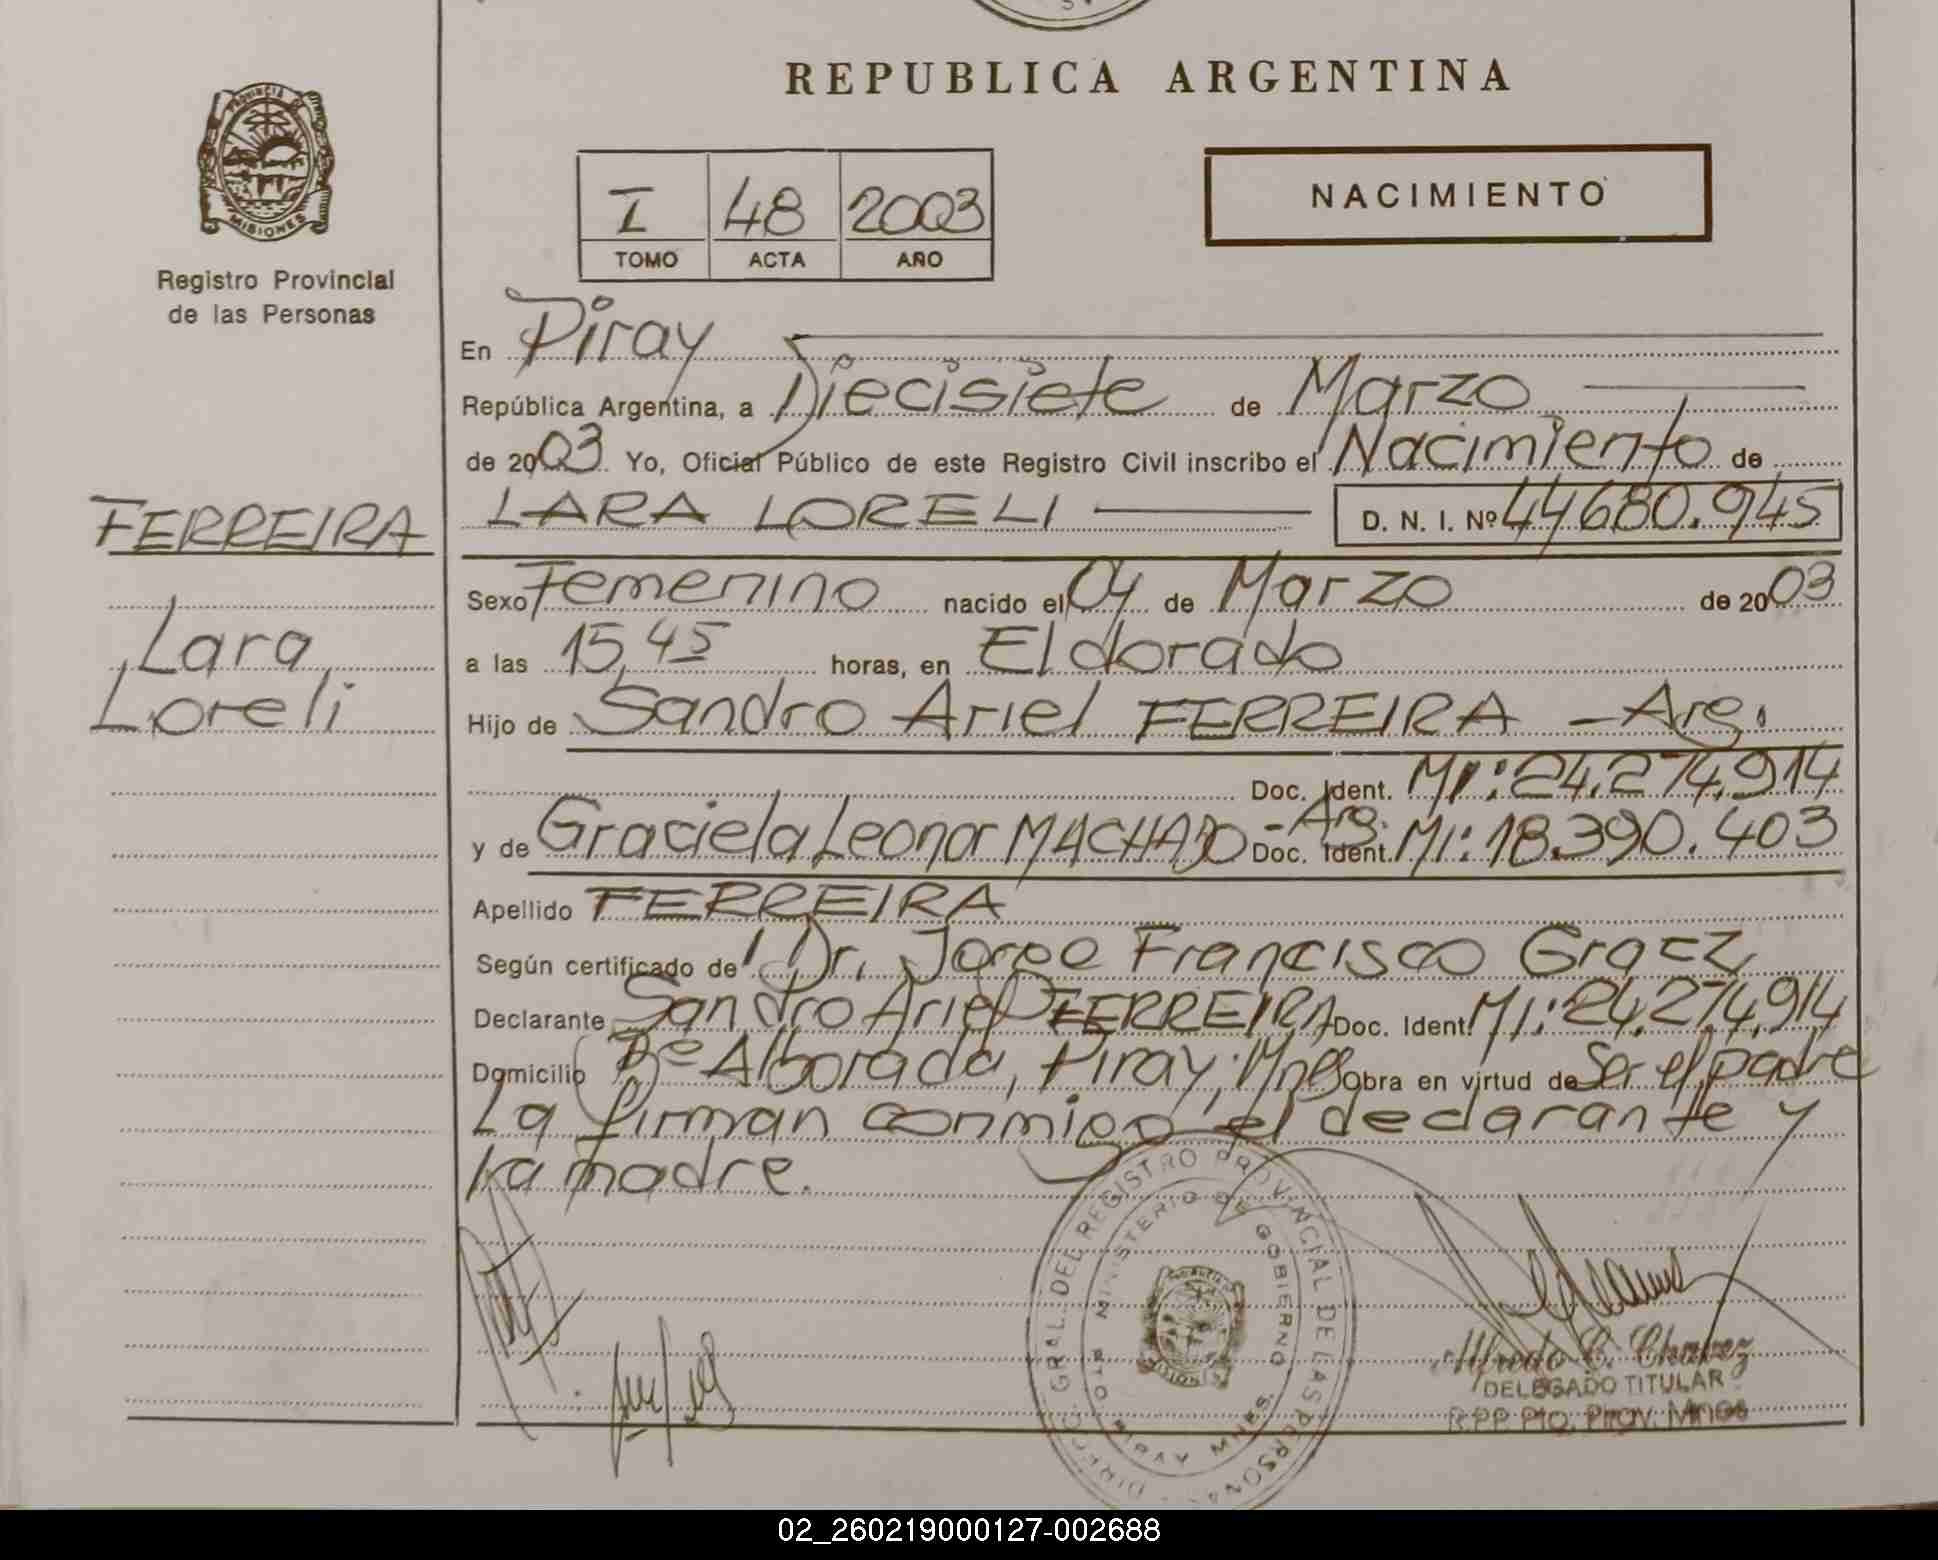 REPUBLICA ARGENTINA
PROVINCIA DE MISIONES
Registro Provincial
de las Personas
I 48 2003
TOMO ACTA AÑO
NACIMIENTO
En Piray
República Argentina, a Diecisiete de Marzo
de 2003 Yo, Oficial Público de este Registro Civil inscribo el Nacimiento de
FERREIRA
Lara
Loreli
LARA LORELI D. N. I. Nº 44680.945
Sexo Femenino nacido el 04 de Marzo de 2003
a las 15,45 horas, en Eldorado
Hijo de Sandro Ariel FERREIRA - Arg.
Doc. Ident. MI: 24.274.914
y de Graciela Leonor MACHADO - Arg. Doc. Ident. MI: 18.390.403
Apellido FERREIRA
Según certificado de Dr. Jorge Francisco
Declarante Sandro Ariel FERREIRA Doc. Ident. MI: 24.274.914
Domicilio Bº Alborada, Piray, Mnes Obra en virtud de Ser el padre
La firman conmigo el declarante y
la madre.
DIREC. GRAL. DEL REGISTRO PROVINCIAL DE LAS PERSONAS
MINISTERIO DE GOBIERNO
PTO. PIRAY MNES.
Alfredo C. Chavez
DELEGADO TITULAR
R.P.P. Pto. Piray. Mnes
02_260219000127-002688